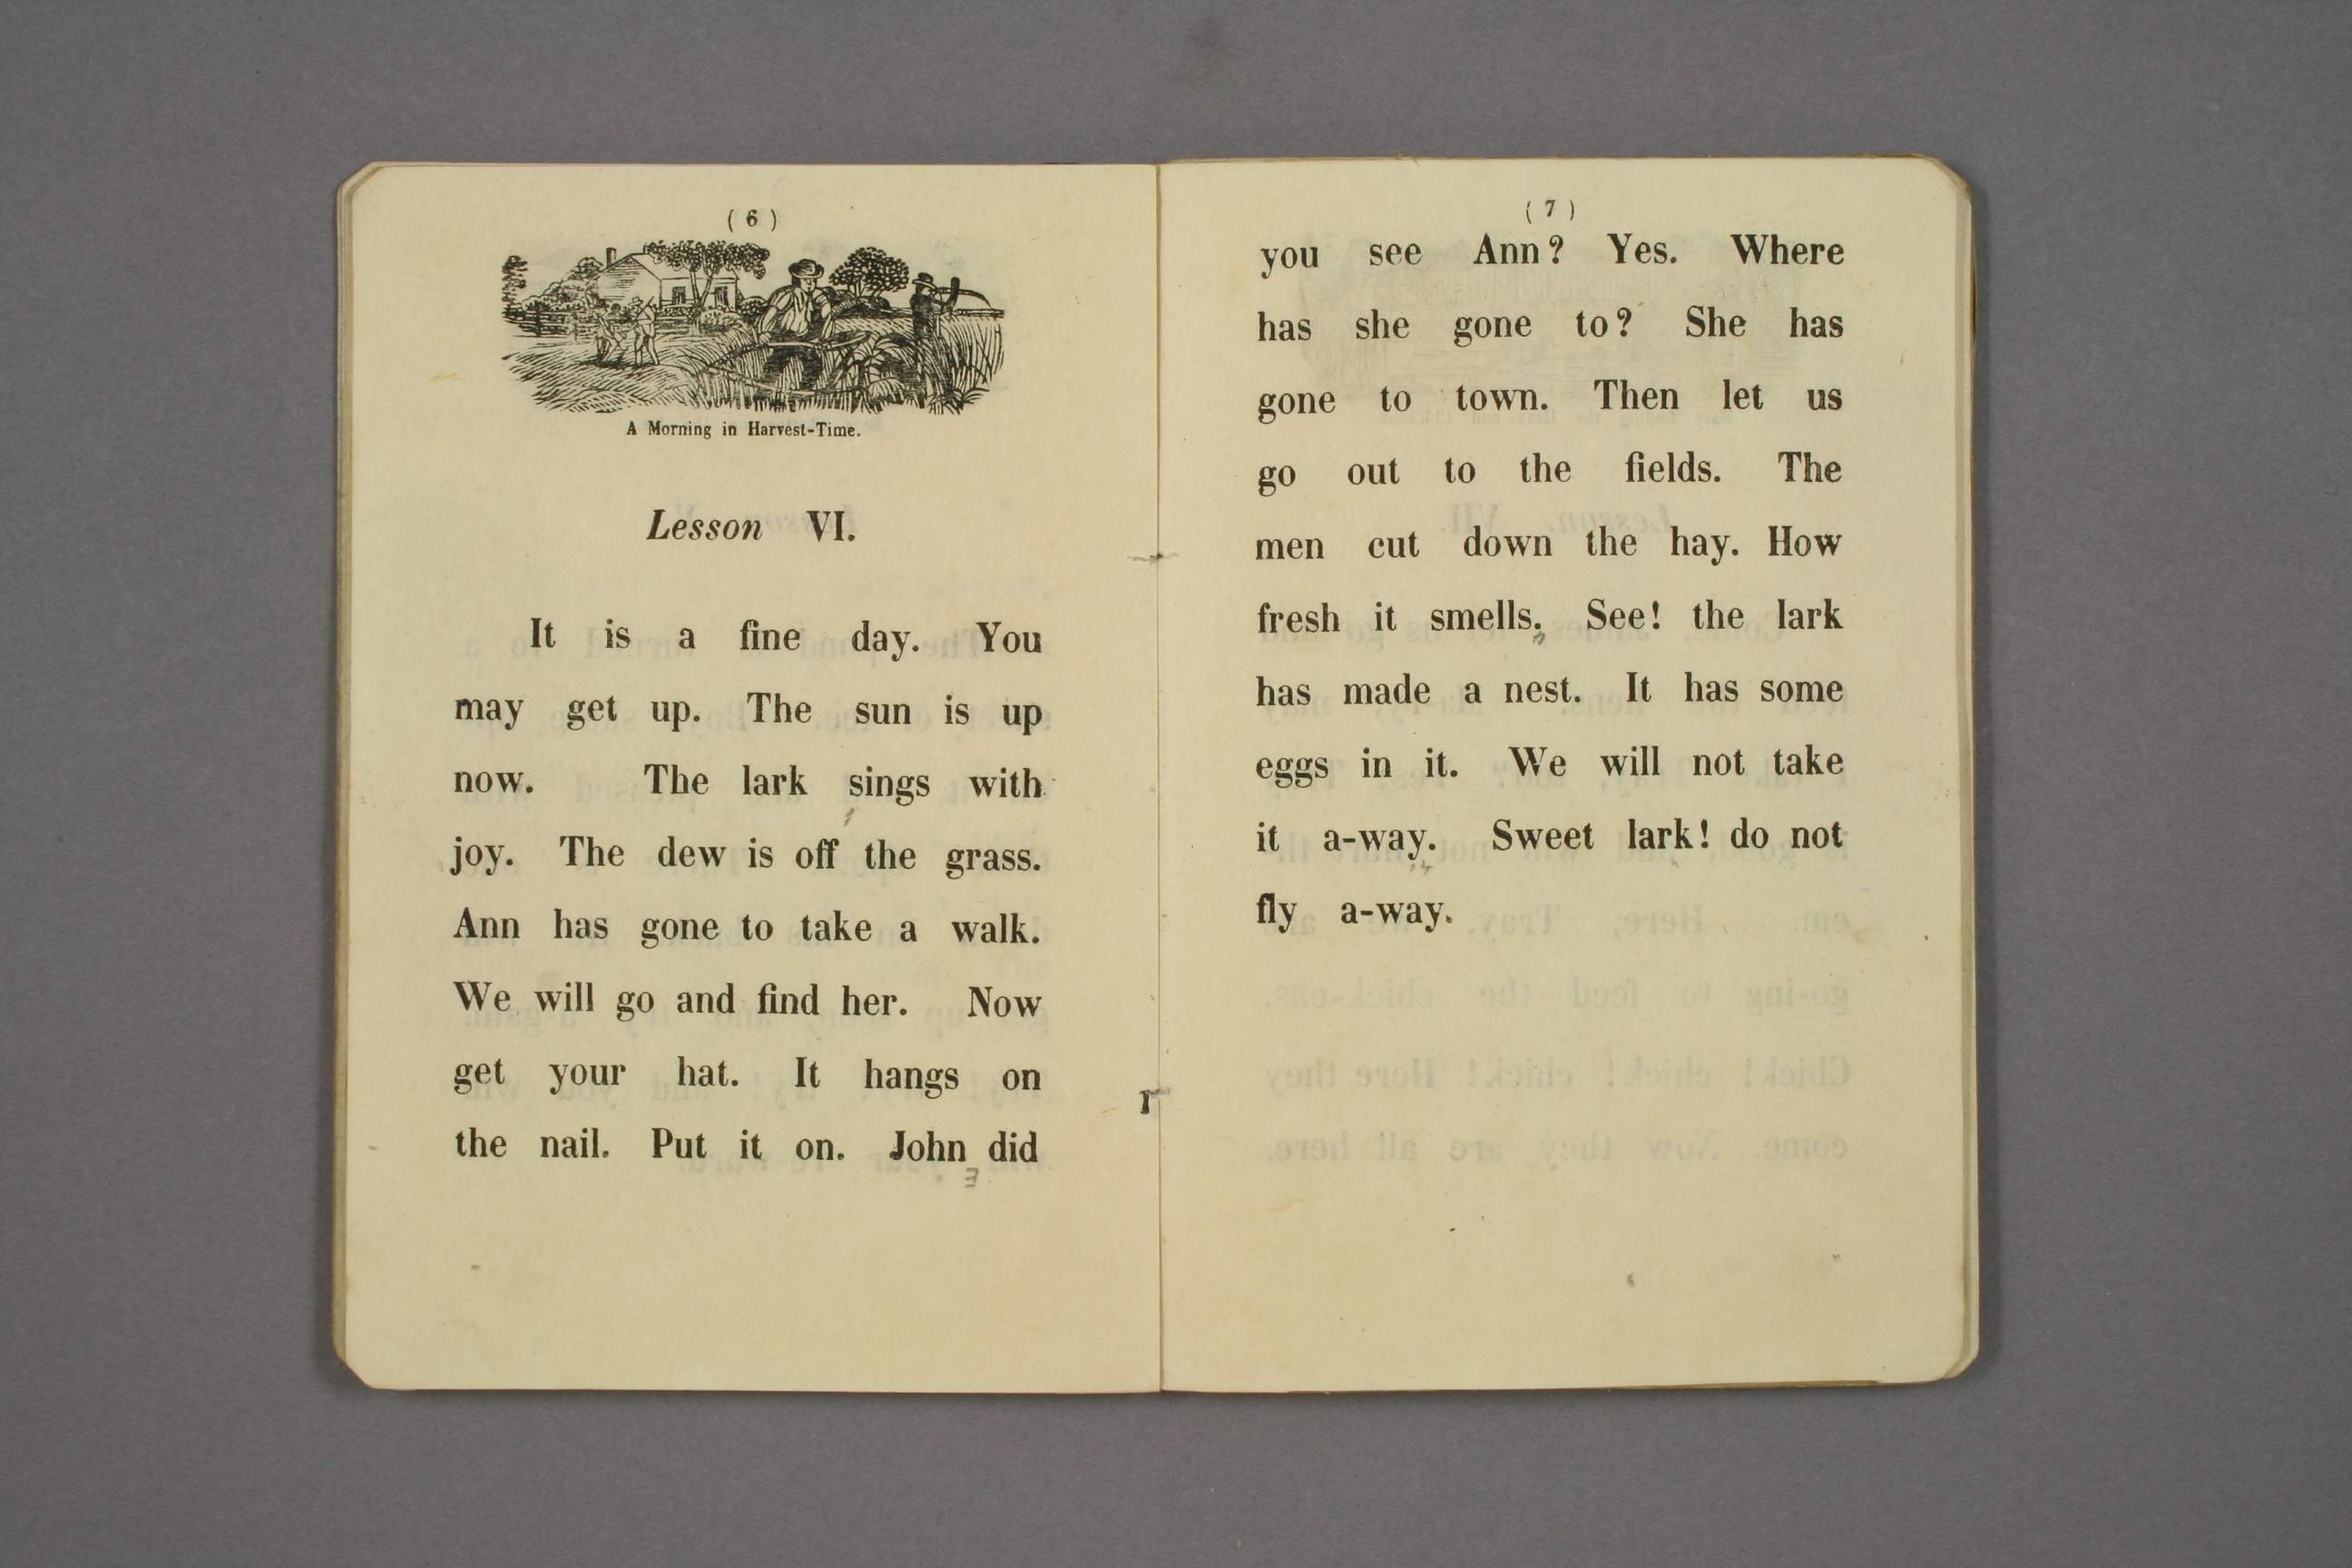 ( 6 )
A Morning in Harvest-Time.
Lesson VI.
It is a fine day. You
may get up. The sun is up
now. The lark sings with
joy. The dew is off the grass.
Ann has gone to take a walk.
We will go and find her. Now
get your hat. It hangs on
the nail. Put it on. John did
( 7 )
you see Ann? Yes. Where
has she gone to? She has
gone to town. Then let us
go out to the fields. The
men cut down the hay. How
fresh it smells. See! the lark
has made a nest. It has some
eggs in it. We will not take
it a-way. Sweet lark! do not
fly a-way.